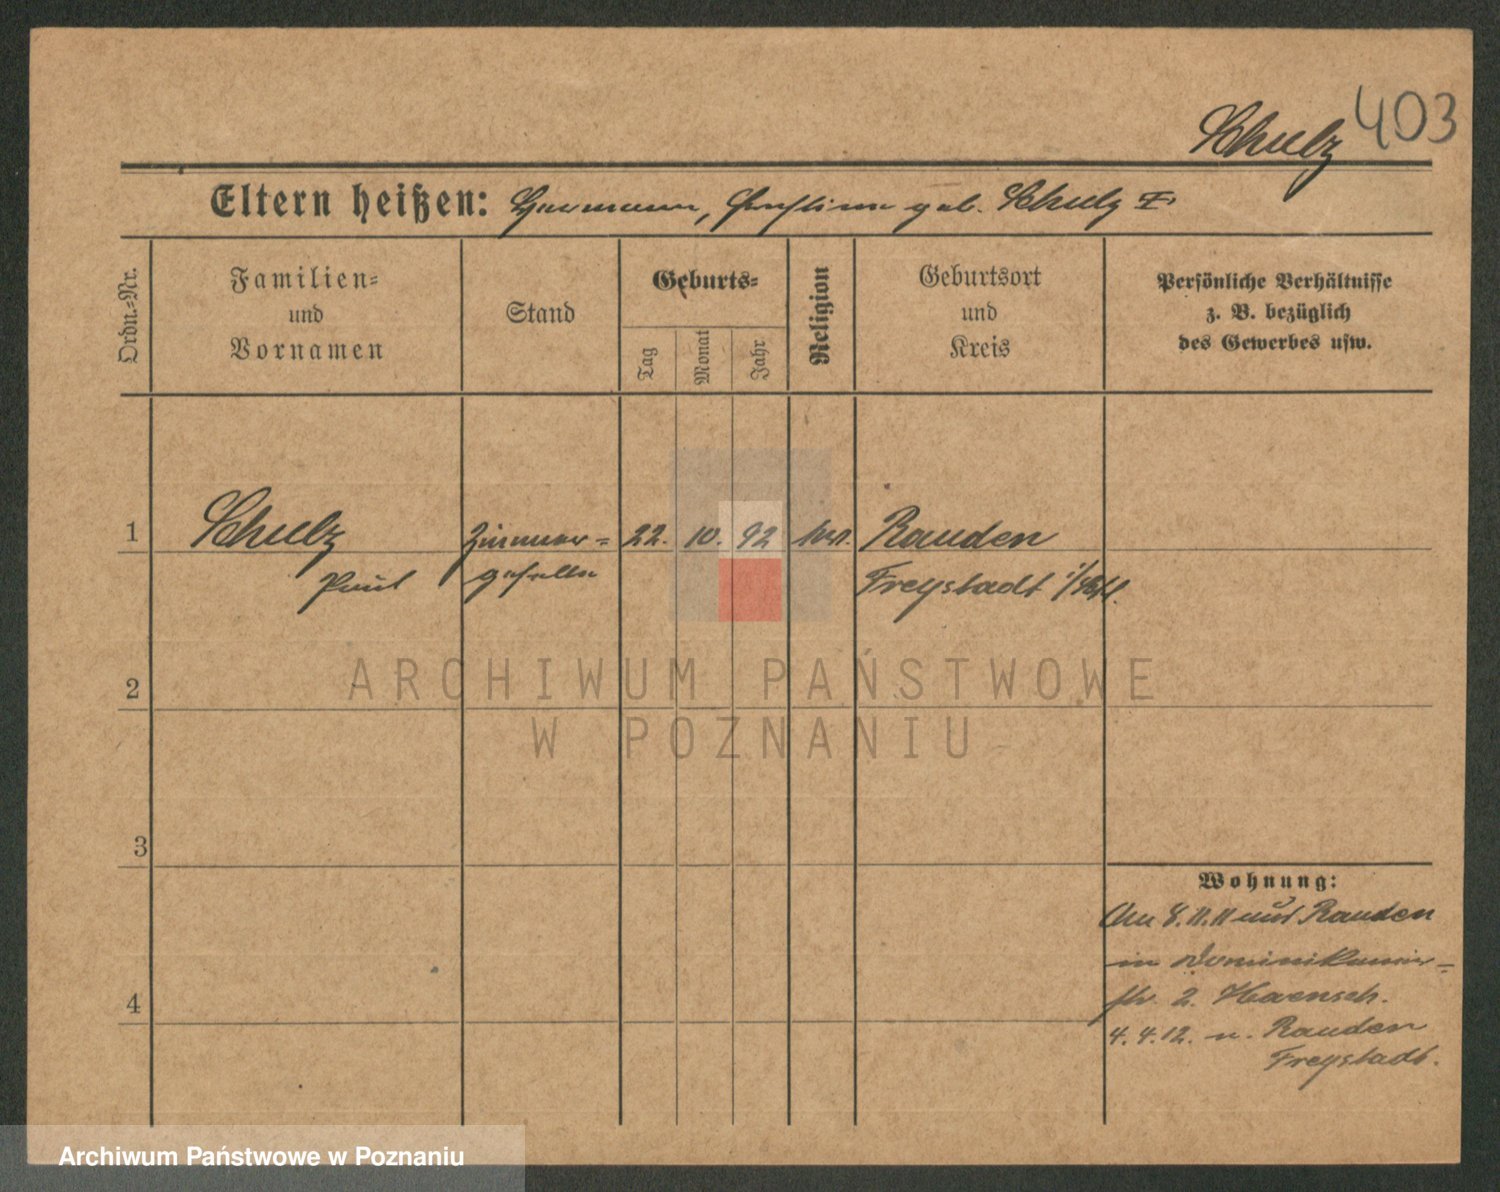 Schulz 403
Eltern heißen: Hermann, geb. Schulz
Ordn.=Nr.
Familien=
und
Vornamen
Stand
Geburts=
Tag
Monat
Jahr
Religion
Geburtsort
und
Kreis
Persönliche Verhältnisse
z. B. bezüglich
des Gewerbes usw.
1 Schulz Zimmer= 22. 10. 92 Rauden
Paul geselle Freystadt
2
ARCHIWUM PAŃSTWOWE
W POZNANIU
3
Wohnung:
8.11.11 aus Rauden
in Dominikaner=
str. 2. Haensch.
4
4.4.12. n. Rauden
Freystadt.
Archiwum Państwowe w Poznaniu